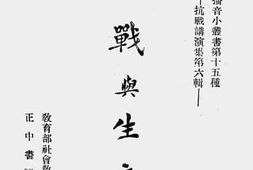 播音小叢書第十五種
——抗戰講演集第六輯——
戰與生
教育部社會教
正中書